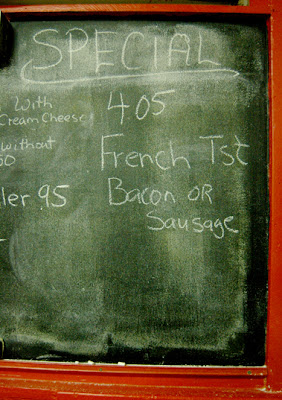 SPECIAL
With
Cream Cheese
without
50
ler 95
4.05
French Tst
Bacon OR
Sausage